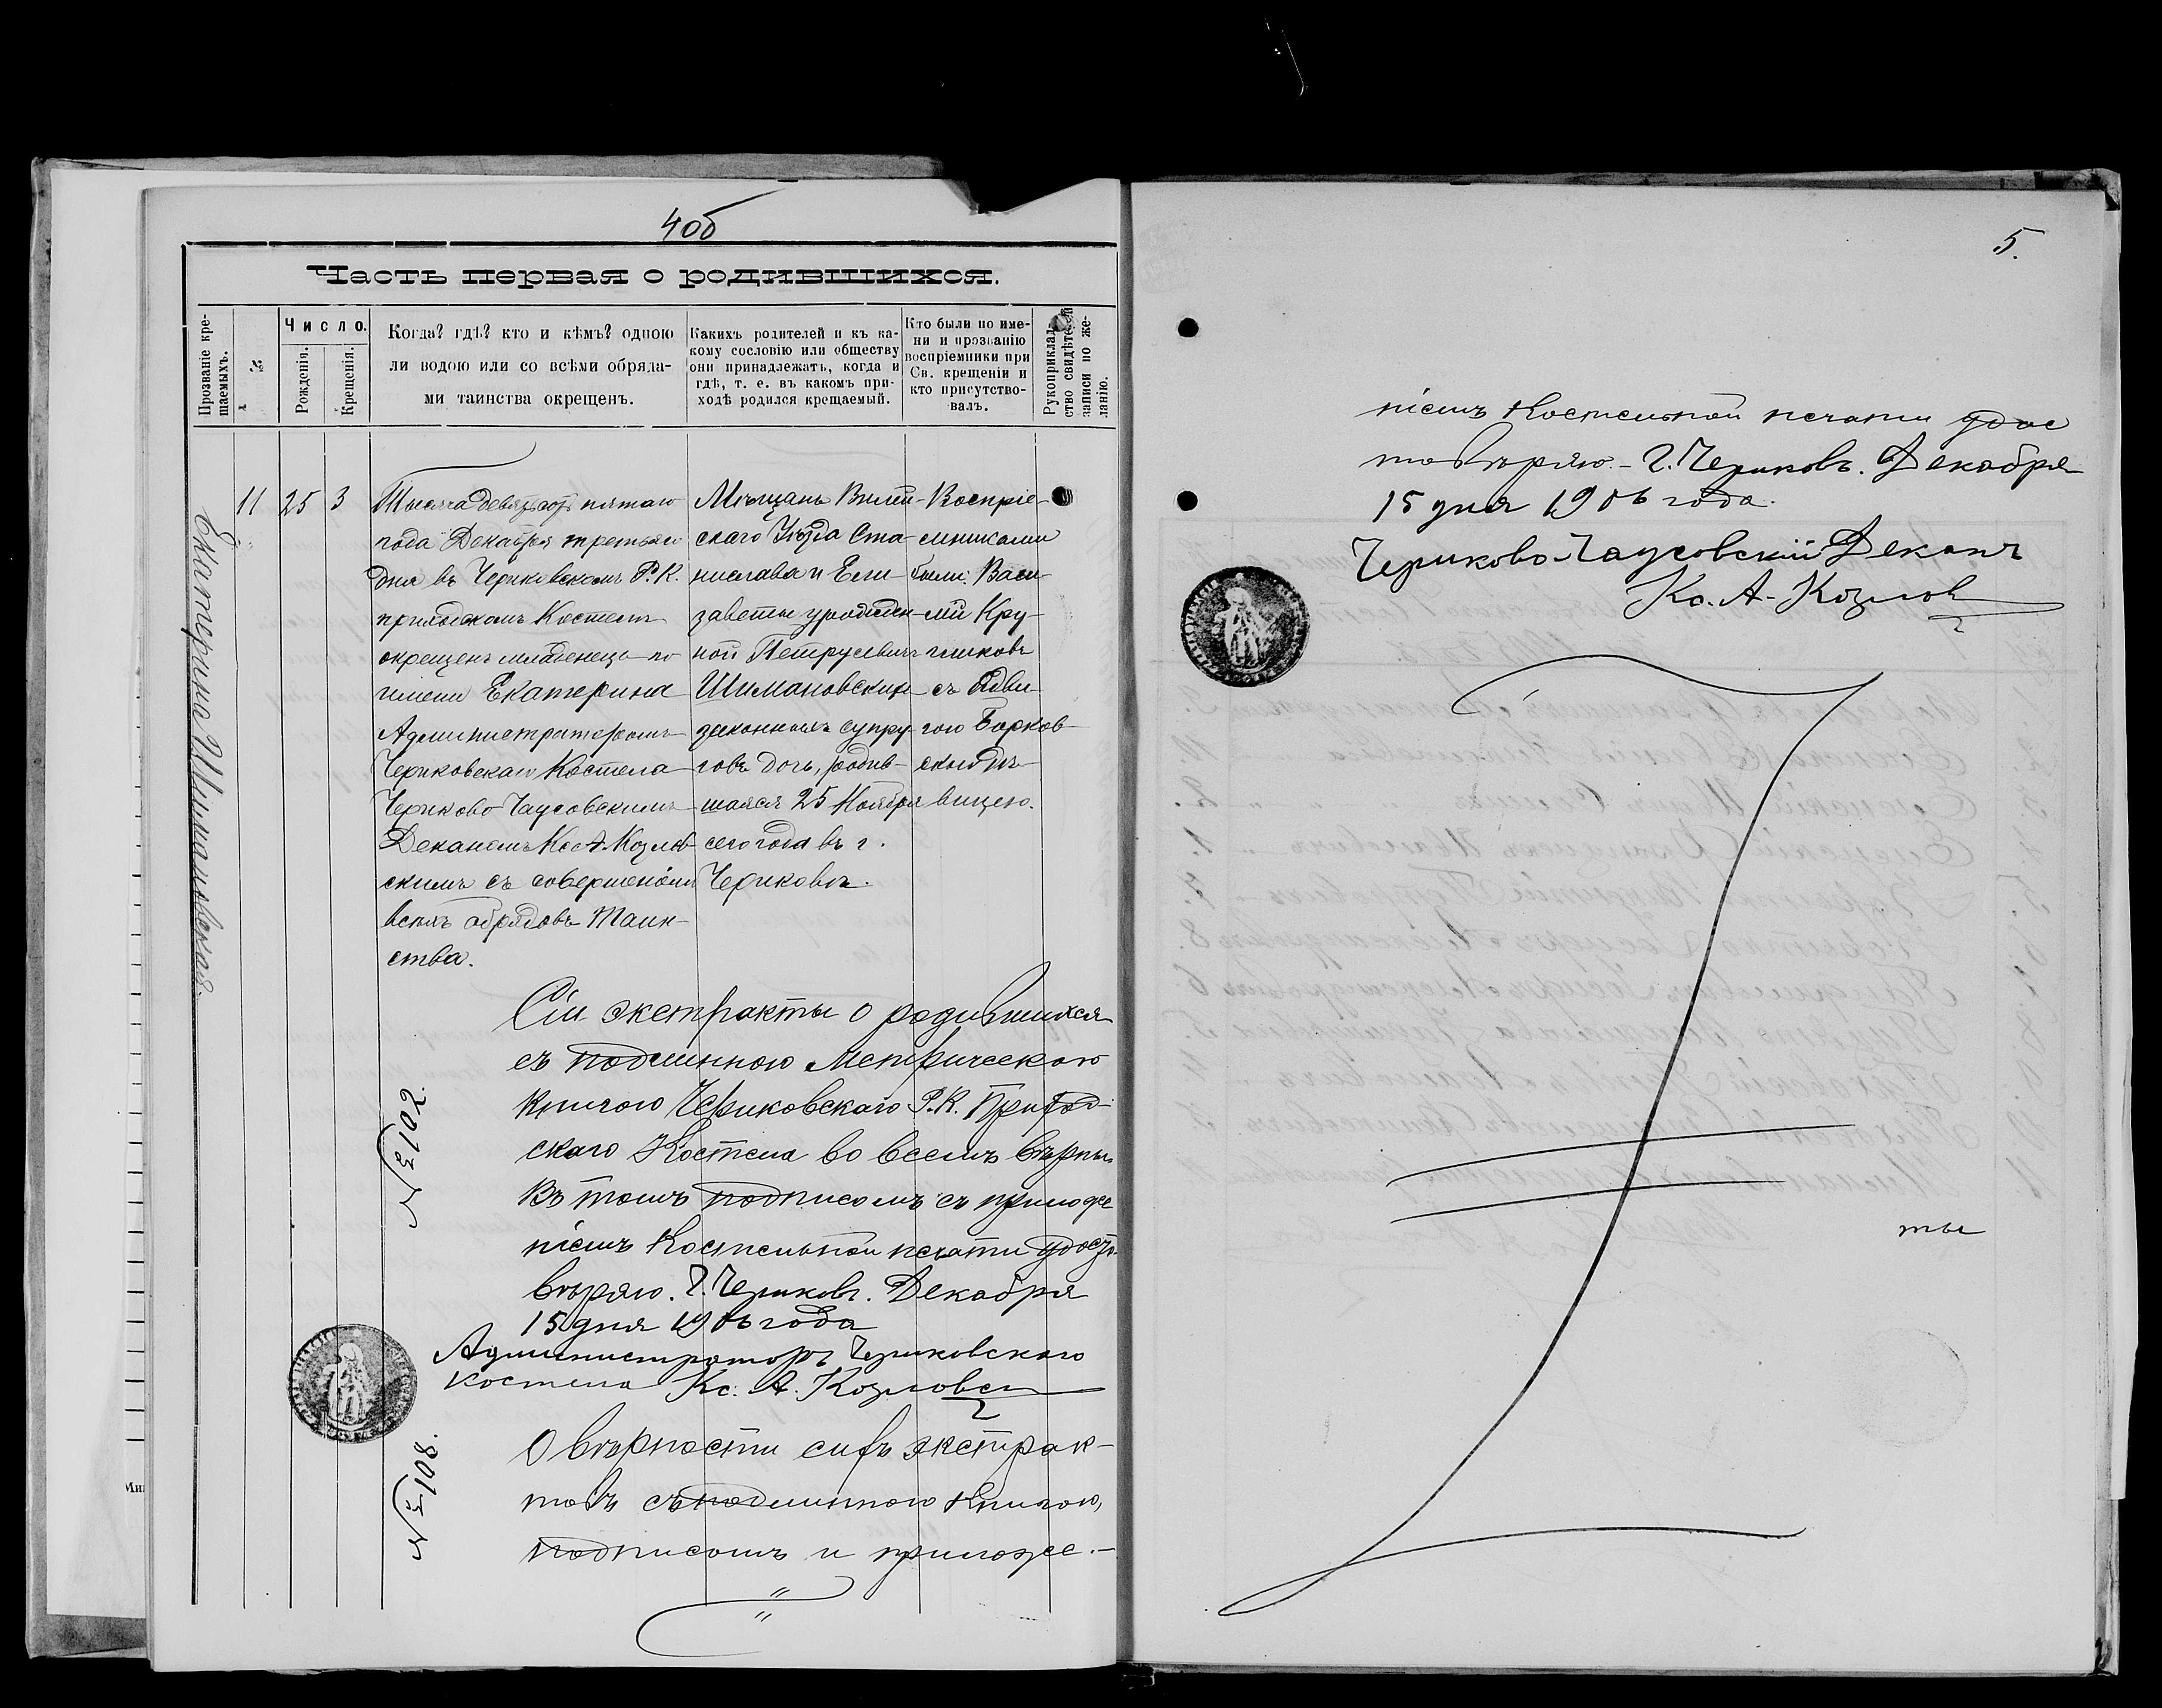 4об
Часть первая о родившихся.
Прозваніе кре-
щаемыхъ.
№
Число.
Рожденія.
Крещенія.
Когда? гдѣ? кто и кѣмъ? одною
ли водою или со всѣми обряда-
ми таинства окрещенъ.
Какихъ родителей и къ ка-
кому сословію или обществу
они принадлежатъ, когда и
гдѣ, т. е. въ какомъ при-
ходѣ родился крещаемый.
Кто были по име-
ни и прозванію
воспріемники при
Св. крещеніи и
кто присутство-
валъ.
Рукоприклад-
ство свидѣтелей
записи по же-
ланію.
Екатерина Шимановская.
11
25
3
Тысяча девятьсотъ пятаго
года Декабря третьяго
дня въ Чериковскомъ Р. К.
приходскомъ Костелѣ
окрещенъ младенецъ по
имени Екатерина
Администраторомъ
Чериковскаго Костела
Чериково-Чаусовскимъ
Деканомъ Кс. А. Козлов-
скимъ съ совершеніемъ
всѣхъ обрядовъ Таин-
ства.
Мѣщанъ
скаго Уѣзда Ста-
нислава и Ели-
заветы урожден-
ной Петрусевичъ
Шимановскихъ
законныхъ супру-
говъ дочь, родив-
шаяся 25 Ноября
сего года въ г.
Чериковѣ.
Воспріе-
мниками
были: Васи-
лій Кру-
гликовъ
съ Ядви-
гою Борков-
скою дѣ-
вицею.
Сіи экстракты о родившихся
съ подлинною Метрическою
книгою Чериковскаго Р. К. Приход-
скаго Костела во всемъ вѣрны
въ томъ подписомъ съ приложе
ніемъ Костельной печати удосто-
вѣряю. Г. Чериковъ. Декабря
15 дня 1906 года
Администраторъ Чериковскаго
Костела Кс. А. Козловск
№ 102.
О вѣрности сихъ экстрак-
товъ съ подлинною книгою,
подписомъ и приложе-
№ 108.
5.
ніемъ Костельной печати удос
товѣряю. Г. Чериковъ. Декабря
15 дня 1906 года.
Чериково-Чаусовскій Деканъ
Кс. А. Козлов
ты